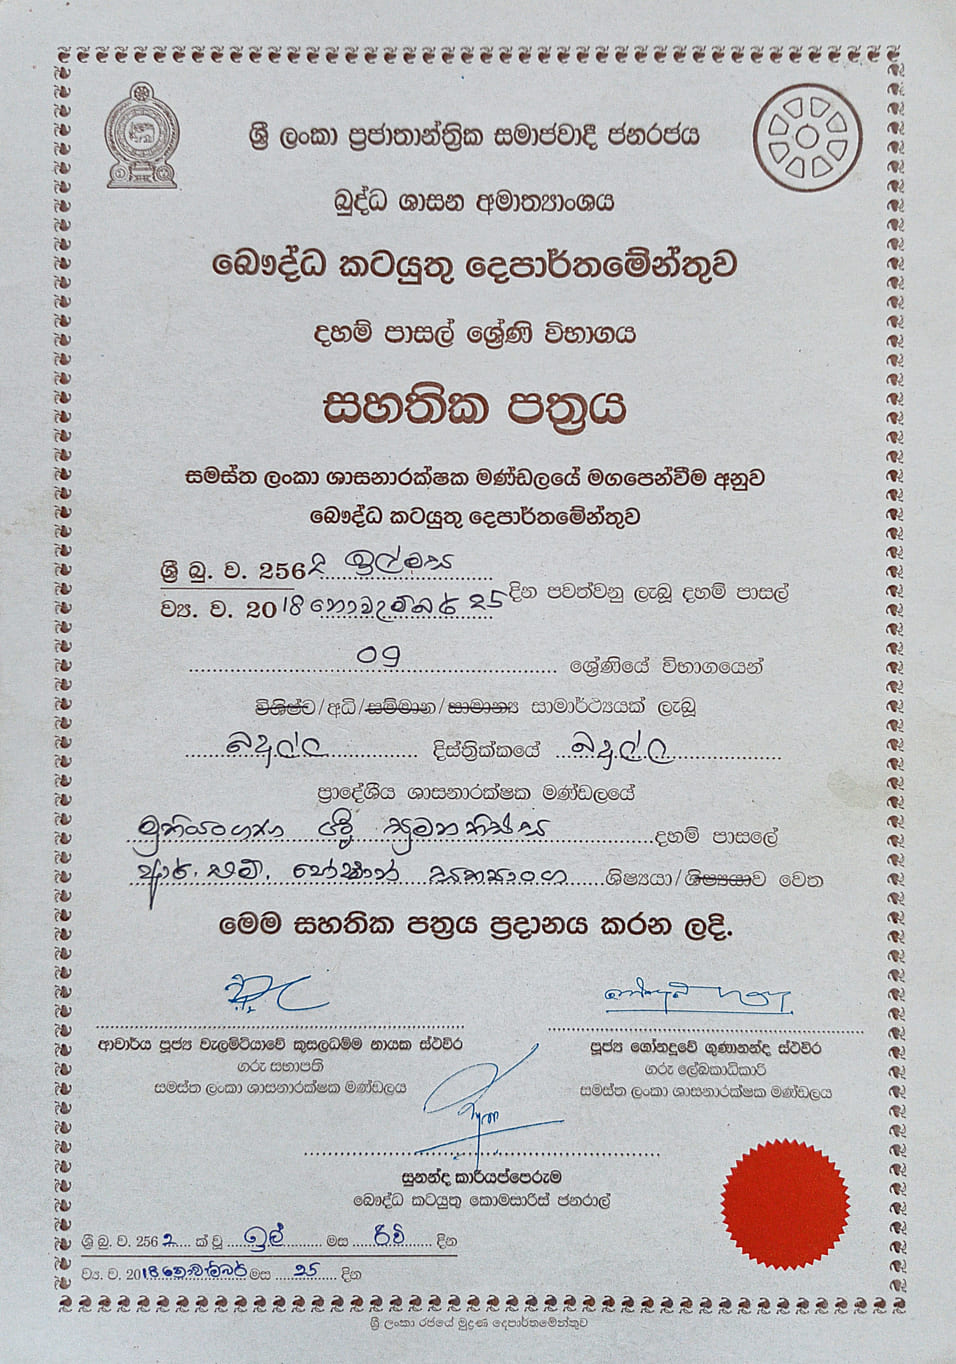 ශ්‍රී ලංකා ප්‍රජාතාන්ත්‍රික සමාජවාදී ජනරජය
බුද්ධ ශාසන අමාත්‍යාංශය
බෞද්ධ කටයුතු දෙපාර්තමේන්තුව
දහම් පාසල් ශ්‍රේණි විභාගය
සහතික පත්‍රය
සමස්ත ලංකා ශාසනාරක්ෂක මණ්ඩලයේ මගපෙන්වීම අනුව
බෞද්ධ කටයුතු දෙපාර්තමේන්තුව
ශ්‍රී බු. ව. 2562 ඉල්මස
ව්‍ය. ව. 2018 නොවැම්බර් 25 දින පවත්වනු ලැබූ දහම් පාසල්
09 ශ්‍රේණියේ විභාගයෙන්
විශිෂ්ට/අධි/සම්මාන/සාමාන්‍ය සාමාර්ථ්‍යයක් ලැබූ
බදුල්ල දිස්ත්‍රික්කයේ බදුල්ල
ප්‍රාදේශීය ශාසනාරක්ෂක මණ්ඩලයේ
මුතියංගන ශ්‍රී සුමනතිස්ස දහම් පාසලේ
ආර්. එම්. හේෂාන් ශිෂ්‍යයා/ශිෂ්‍යයාව වෙත
මෙම සහතික පත්‍රය ප්‍රදානය කරන ලදි.
ආචාර්ය පූජ්‍ය වැලමිටියාවේ කුසලධම්ම නායක ස්ථවිර
ගරු සභාපති
සමස්ත ලංකා ශාසනාරක්ෂක මණ්ඩලය
පූජ්‍ය ගෝනදූවේ ගුණානන්ද ස්ථවිර
ගරු ලේඛකාධිකාරි
සමස්ත ලංකා ශාසනාරක්ෂක මණ්ඩලය
සුනන්ද කාරියප්පෙරුම
බෞද්ධ කටයුතු කොමසාරිස් ජනරාල්
ශ්‍රී බු. ව. 2562 ක් වූ ඉල් මස රිවි දින
ව්‍ය. ව. 2018 නොවැම්බර් මස 25 දින
ශ්‍රී ලංකා රජයේ මුද්‍රණ දෙපාර්තමේන්තුව